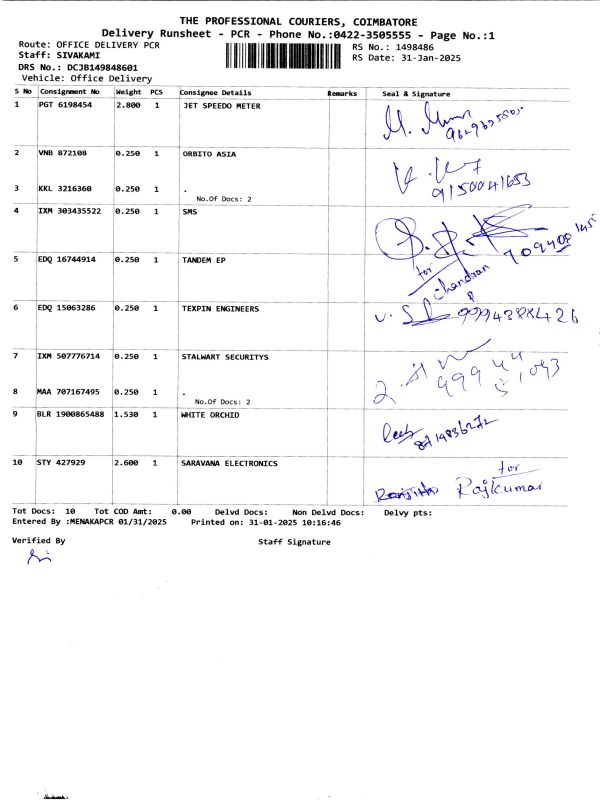 THE PROFESSIONAL COURIERS, COIMBATORE
Delivery Runsheet - PCR - Phone No.:0422-3505555 - Page No.:1
Route: OFFICE DELIVERY PCR RS No.: 1498486
Staff: SIVAKAMI RS Date: 31-Jan-2025
DRS No.: DCJB149848601
Vehicle: Office Delivery
S No Consignment No Weight PCS Consignee Details Remarks Seal & Signature
1 PGT 6198454 2.800 1 JET SPEEDO METER
2 VNB 872108 0.250 1 ORBITO ASIA
9150041653
3 KKL 3216360 0.250 1 .
No.Of Docs: 2
4 IXM 303435522 0.250 1 SMS
5 EDQ 16744914 0.250 1 TANDEM EP
for chandran
6 EDQ 15063286 0.250 1 TEXPIN ENGINEERS
9994388426
7 IXM 507776714 0.250 1 STALWART SECURITYS
8 MAA 707167495 0.250 1 .
No.Of Docs: 2
9 BLR 1900865488 1.530 1 WHITE ORCHID
10 STY 427929 2.600 1 SARAVANA ELECTRONICS
for
Ranjith Rajkumar
Tot Docs: 10 Tot COD Amt: 0.00 Delvd Docs: Non Delvd Docs: Delvy pts:
Entered By :MENAKAPCR 01/31/2025 Printed on: 31-01-2025 10:16:46
Verified By Staff Signature